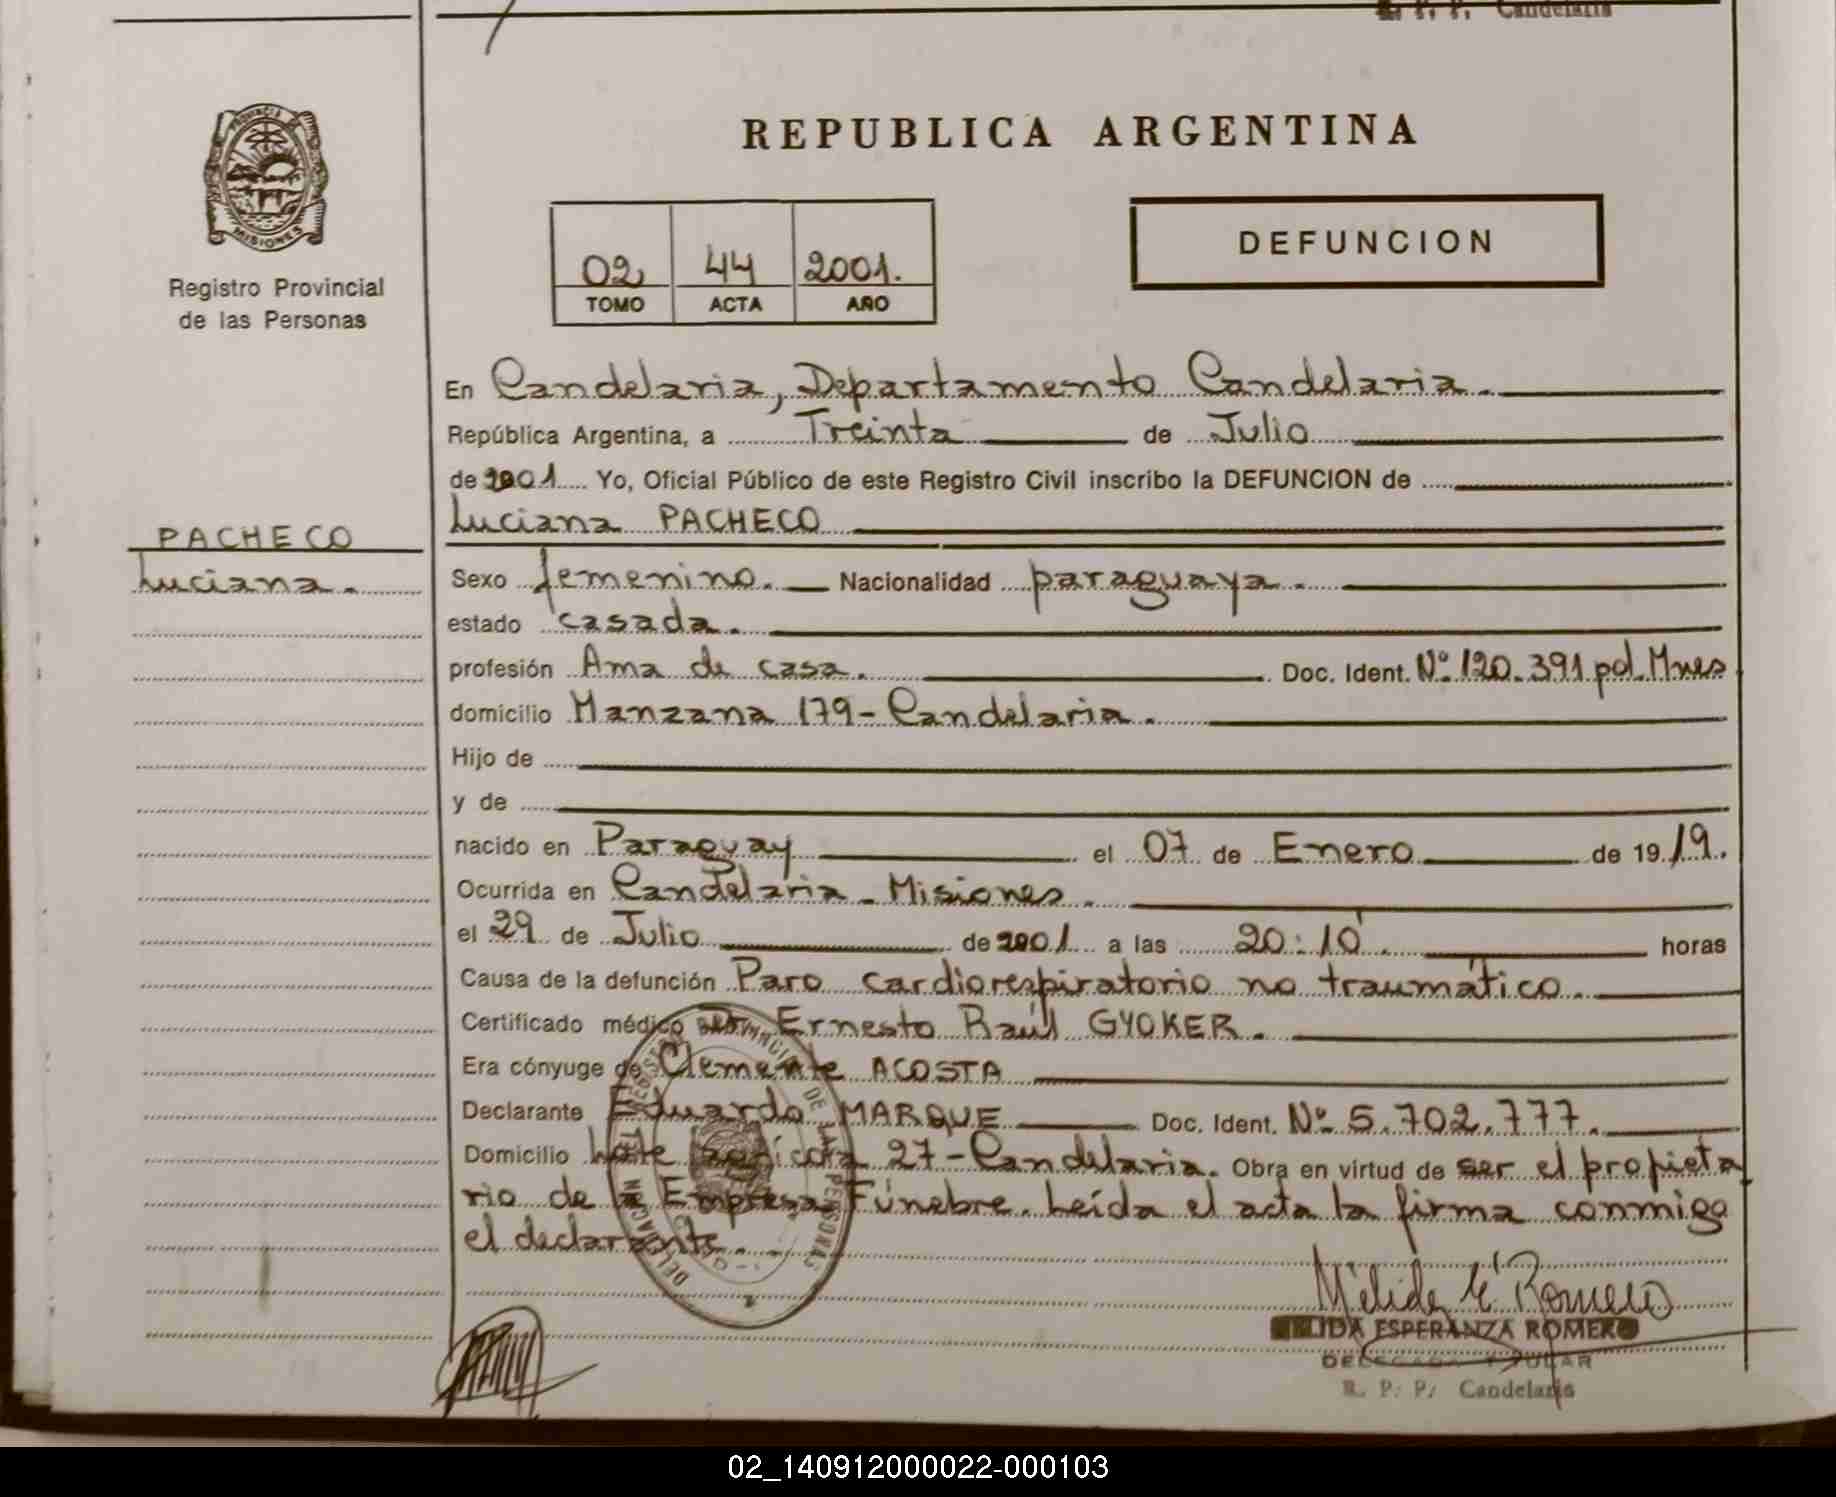 R. P. P. Candelaria
PROVINCIA DE
MISIONES
Registro Provincial
de las Personas
REPUBLICA ARGENTINA
02 44 2001.
TOMO ACTA AÑO
DEFUNCION
En Candelaria, Departamento Candelaria.
República Argentina, a Treinta de Julio
de 2001 Yo, Oficial Público de este Registro Civil inscribo la DEFUNCION de
PACHECO
Luciana.
Luciana PACHECO
Sexo femenino. Nacionalidad paraguaya.
estado casada.
profesión Ama de casa. Doc. Ident. Nº 120.391 pol. Mnes
domicilio Manzana 179 - Candelaria.
Hijo de
y de
nacido en Paraguay el 07 de Enero de 19 19.
Ocurrida en Candelaria - Misiones.
el 29 de Julio de 2001 a las 20:10 horas
Causa de la defunción Paro cardiorespiratorio no traumático.
Certificado médico Dr. Ernesto Raúl GYOKER.
Era cónyuge de Clemente ACOSTA
Declarante Eduardo MARQUE Doc. Ident. Nº 5.702.777.
Domicilio Lote agrícola 27 - Candelaria. Obra en virtud de ser el propieta
rio de la Empresa Fúnebre. Leída el acta la firma conmigo
el declarante.
Mélida E. Romero
ESPERANZA ROMERO
DELEGADA TITULAR
R. P. P. Candelaria
02_140912000022-000103